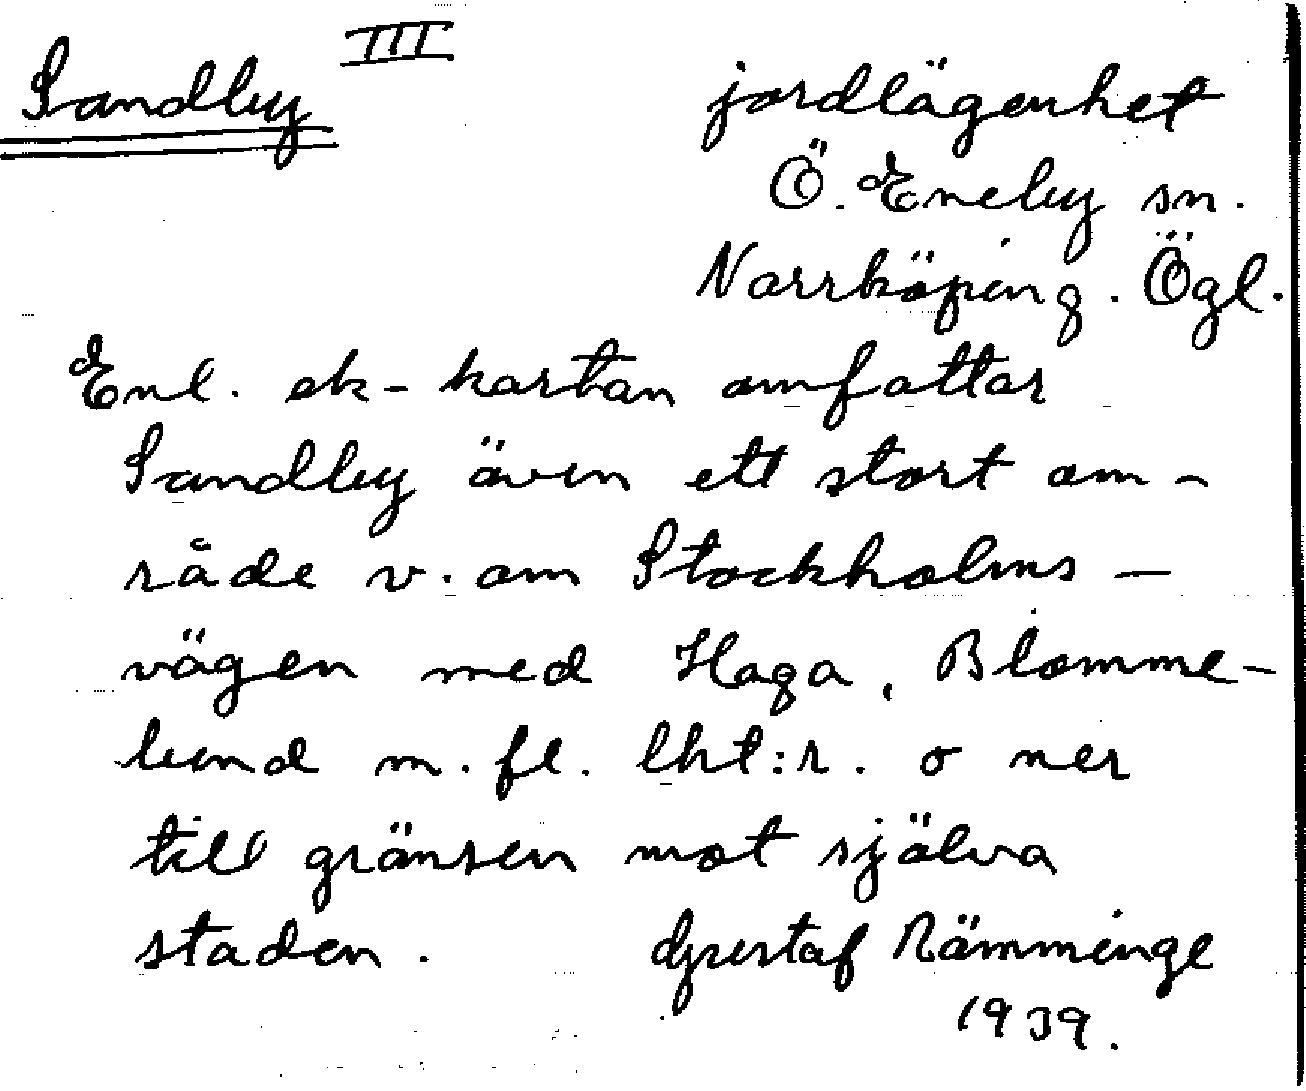 Sandby III
jordlägenhet
Ö. Eneby sn.
Norrköping. Ögl.
Enl. ek-kartan omfattar
Sandby även ett stort om-
råde v. om Stockholms-
vägen med Haga, Blomme-
lund m.fl. lht:r. o ner
till gränsen mot själva
staden. Gustaf Rämminge
1939.